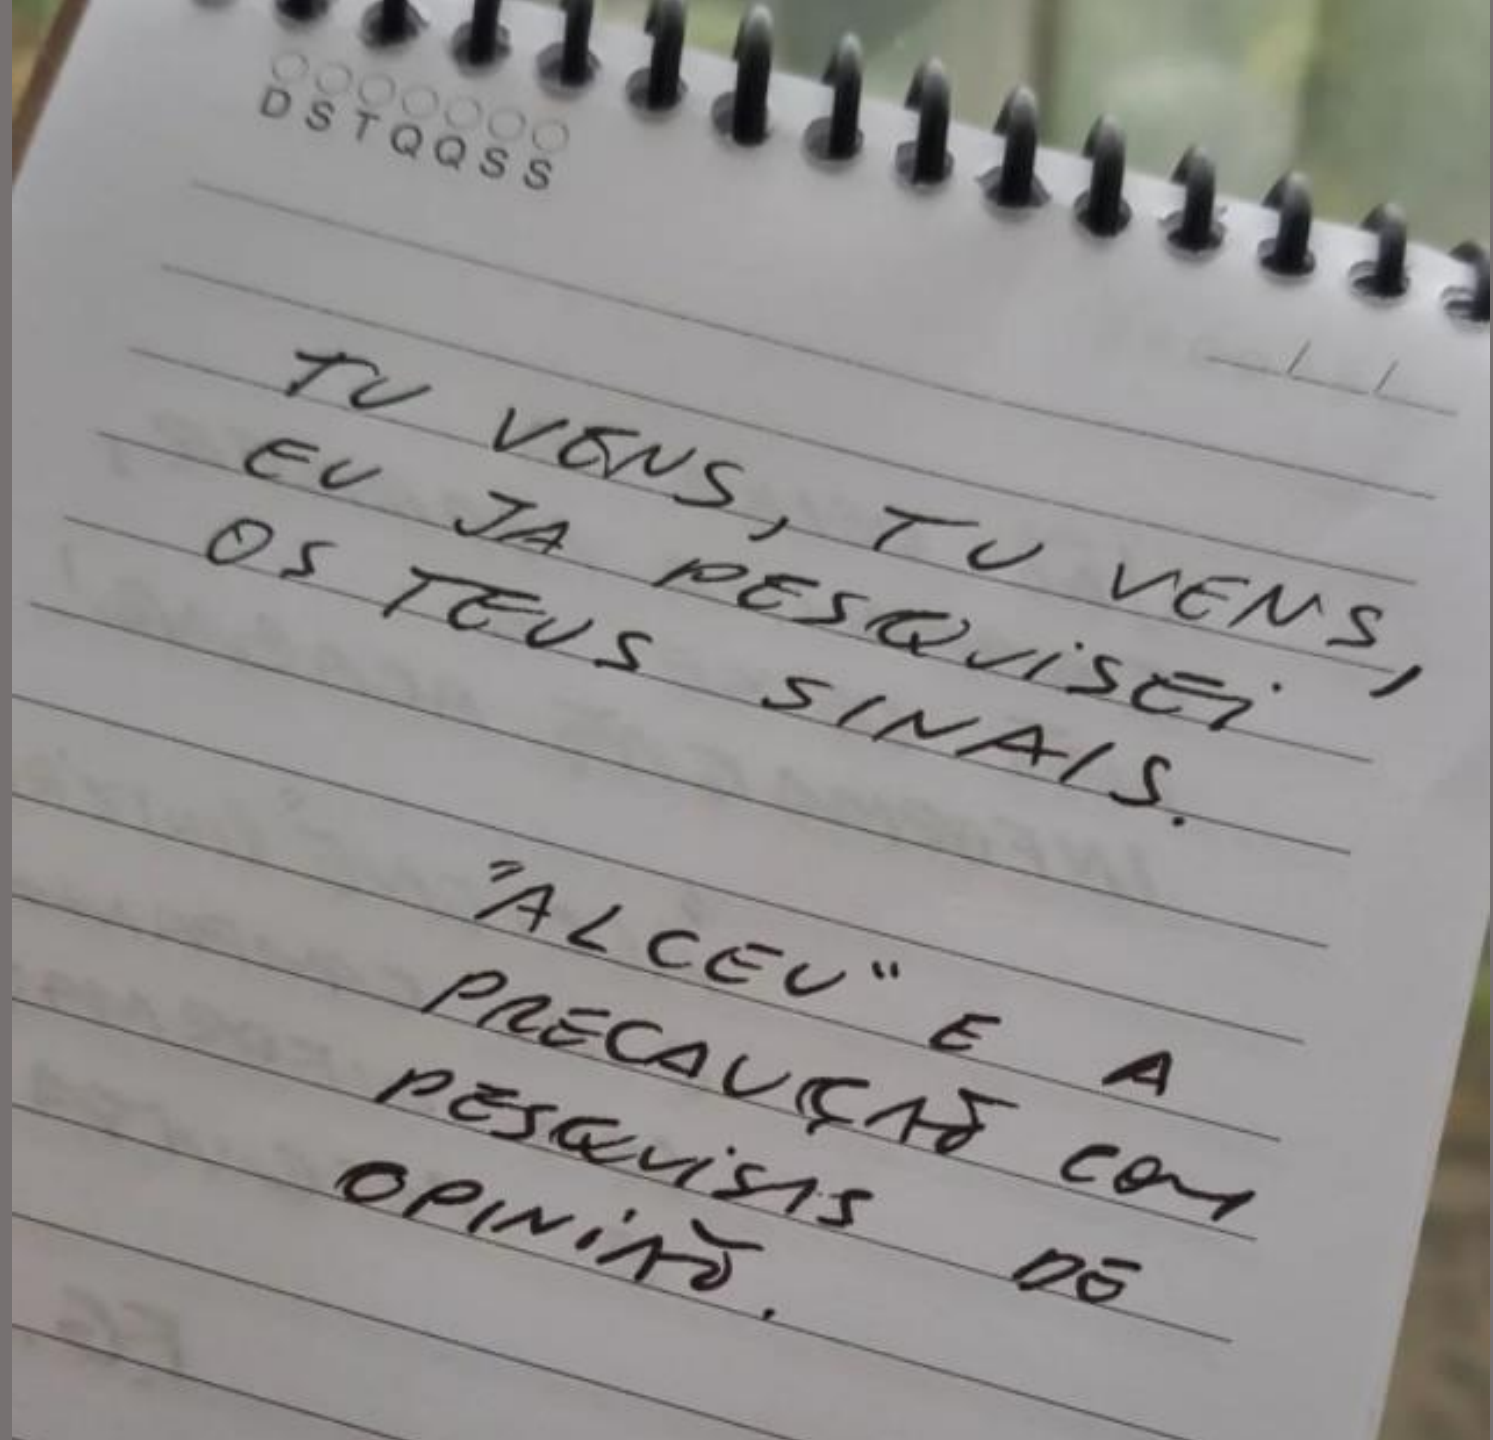 D S T Q Q S S
TU VENS, TU VENS,
EU JA PESQUISEI
OS TEUS SINAIS.
"ALCEU" E A
PRECAUÇÃO COM
PESQUISAS DE
OPINIÃO.